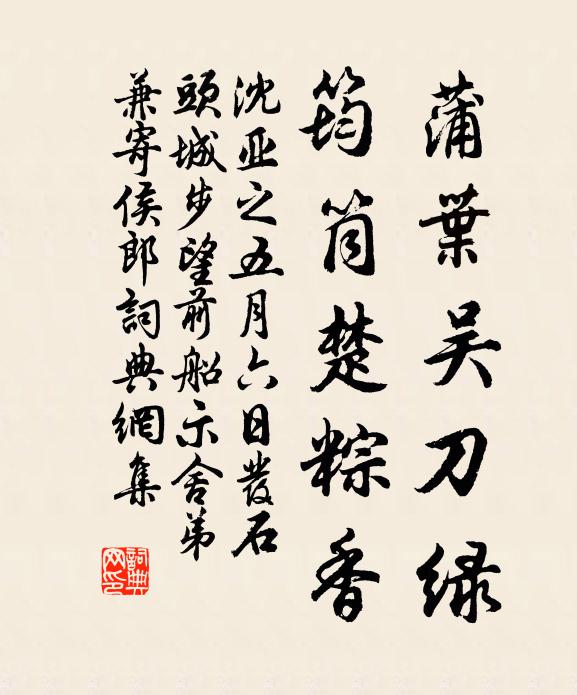 蒲葉吴刀緑
筠筒楚粽香
沈亚之五月六日發石
頭城步望前船示舍弟
兼寄侯郎詞典網集
詞典
网印